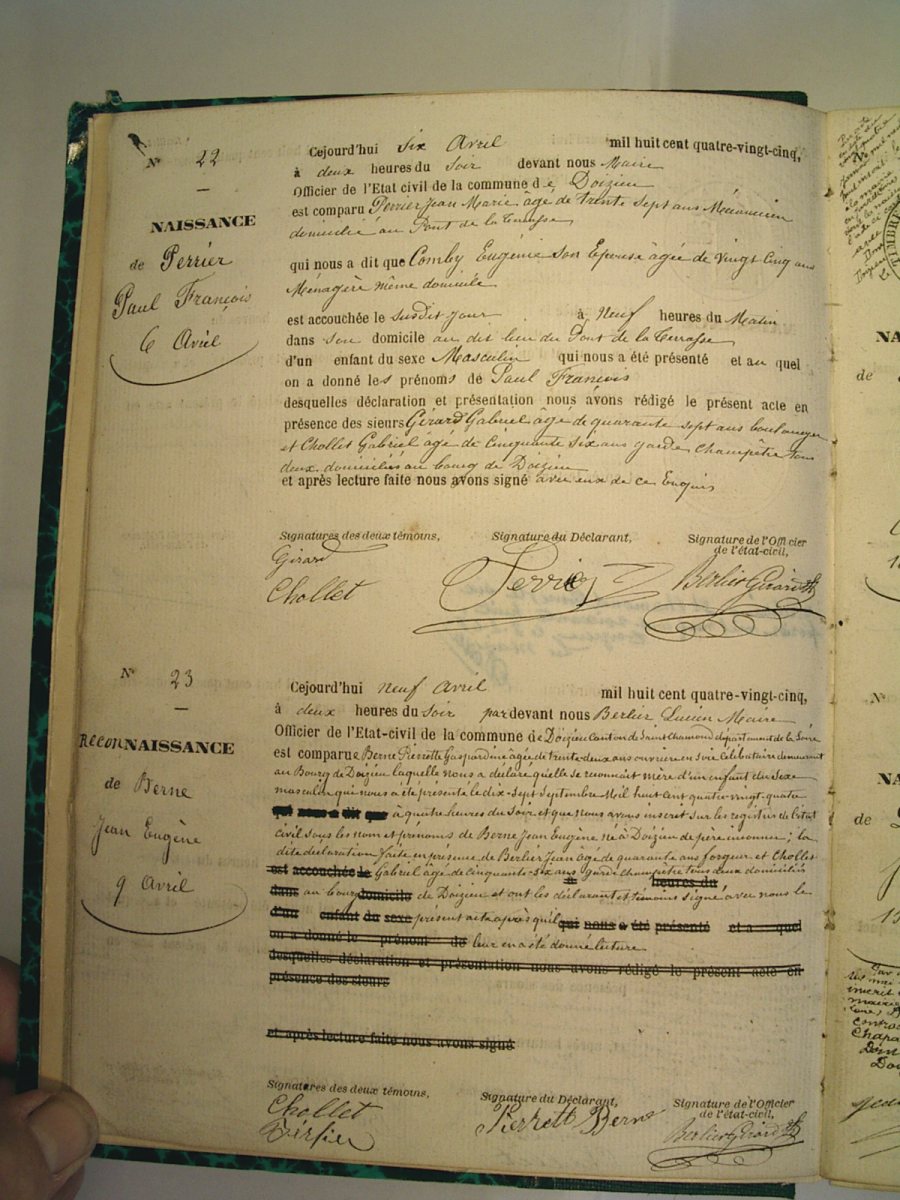 N° 22
NAISSANCE
de Perrier
Paul François
6 Avril
Cejourd'hui six Avril mil huit cent quatre-vingt-cinq,
à deux heures du Soir devant nous Maire
Officier de l'Etat civil de la commune de Doizieu
est comparu Perrier Jean Marie âgé de trente sept ans Mécanicien
domicilié au Pont de la Terrasse
qui nous a dit que Comby Eugénie Son Epouse âgée de vingt Cinq ans
Ménagère même domicile
est accouchée le susdit jour à Neuf heures du Matin
dans son domicile au dit lieu du Pont de la Terrasse
d'un enfant du sexe Masculin qui nous a été présenté et au quel
on a donné les prénoms de Paul François
desquelles déclaration et présentation nous avons rédigé le présent acte en
présence des sieurs Girard Gabriel âgé de quarante sept ans boulanger
et Chollet Gabriel âgé de Cinquante Six ans garde Champêtre tous
deux domiciliés au bourg de Doizieu
et après lecture faite nous avons signé avec eux de ce Enquis
Signatures des deux témoins, Signature du Déclarant, Signature de l'Officier
de l'état-civil,
Girard
Chollet Perrier Berlier Girard
N° 23
RECONNAISSANCE
de Berne
Jean Eugène
9 Avril
Cejourd'hui neuf avril mil huit cent quatre-vingt-cinq,
à deux heures du soir par devant nous Berlier Lucien Maire
Officier de l'Etat-civil de la commune de Doizieu Canton de Saint Chamond département de la Loire
est comparue Berne Pierrette Gaspardine âgée de trente-deux ans ouvrière en soie célibataire demeurant
au Bourg de Doizieu laquelle nous a déclaré qu'elle se reconnait mère d'un enfant du sexe
masculin qui nous a été présenté le dix-sept Septembre Mil huit cent quatre-vingt-quatre
qui nous a dit que à quatre heures du soir et que nous avons inscrit sur les registres de l'état
civil sous les nom et prénoms de Berne Jean Eugène né à Doizieu de père inconnu; la
dite déclaration faite en présence de Berlier Jean âgé de quarante ans forgeur et Chollet
est accouchée le Gabriel âgé de cinquante-six ans Garde Champêtre tous deux domiciliés
heures du
dans au bourg domicile de Doizieu et ont les déclarant et témoins signé avec nous le
d'un enfant du sexe présent acte après qu'il qui nous a été présenté et a quel
on a donné le prénom de leur en a été donné lecture
desquelles déclaration et présentation nous avons rédigé le présent acte en
présence des sieurs
et après lecture faite nous avons signé
Signatures des deux témoins, Signature du Déclarant, Signature de l'Officier
de l'état-civil,
Chollet Pierrett Berne Berlier Girard
NA
de
N°
NA
de